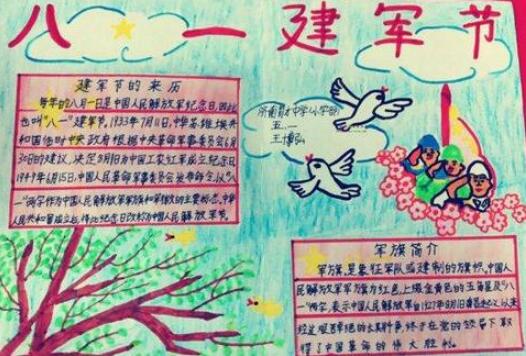 八一建军节
建军节的来历
每年的八月一日是中国人民解放军纪念日，因此
也叫“八一”建军节。1933年7月11日，中华苏维埃共
和国临时中央政府根据中央革命军事委员会6月
30日的建议，决定8月1日为中国工农红军成立纪念日
1949年6月15日，中国人民革命军事委员会发布命令，以“八
一”两字作为中国人民解放军军旗和军徽的主要标志。中华
人民共和国成立后，将此纪念日改称为中国人民解放军建军节。
五.一
王博弘
军旗简介
军旗，是象征军队或建制的旗帜。中国人
民解放军军旗为红色，上缀金黄色的五角星及“八
一”两字，表示中国人民解放军自1927年8月1日南昌起义以来
经过艰苦卓绝的长期斗争，终于在党的领导下取
得了中国革命的伟大胜利。